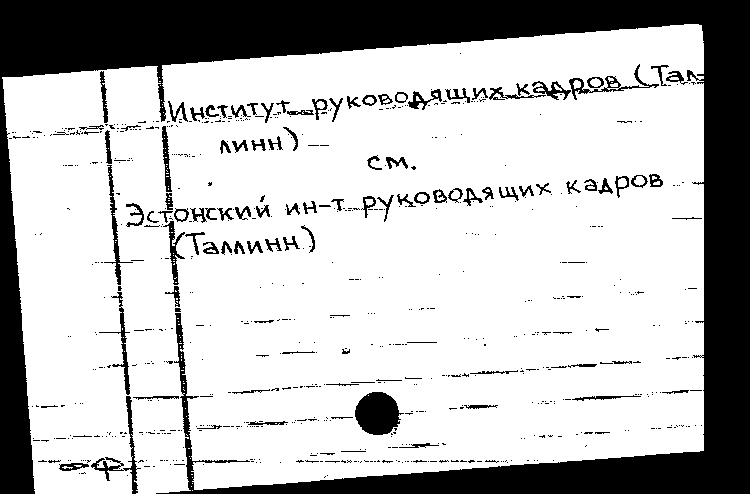 Институт руководящих кадров (Тал-
линн)
см.
Эстонский ин-т руководящих кадров
(Таллинн)